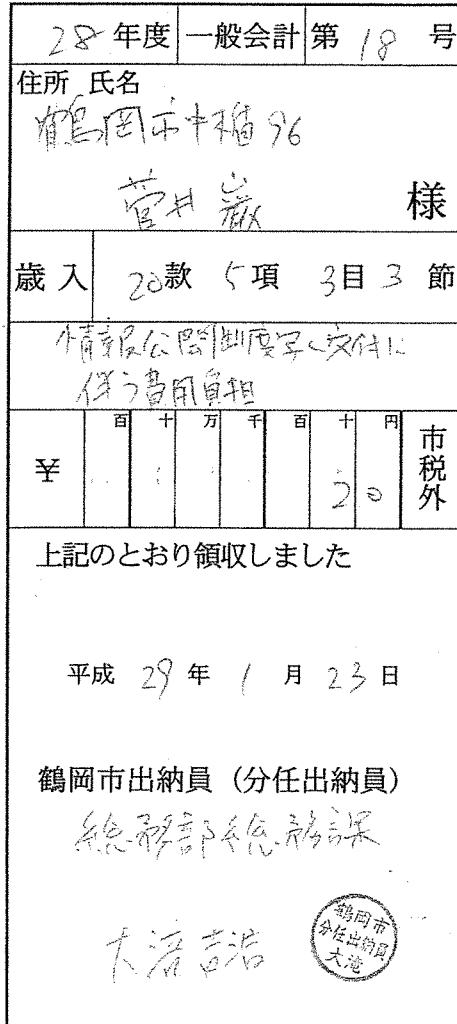 28年度 一般会計 第 18 号
住所 氏名
鶴岡市中楯96
菅井 巌 様
歳入 20款 5項 3目 3 節
情報公開制度写し交付に
伴う費用負担
百 十 万 千 百 十 円
¥ 20 市税外
上記のとおり領収しました
平成 29 年 1 月 23 日
鶴岡市出納員（分任出納員）
総務部総務課
大滝吉浩
鶴岡市
分任出納員
大滝